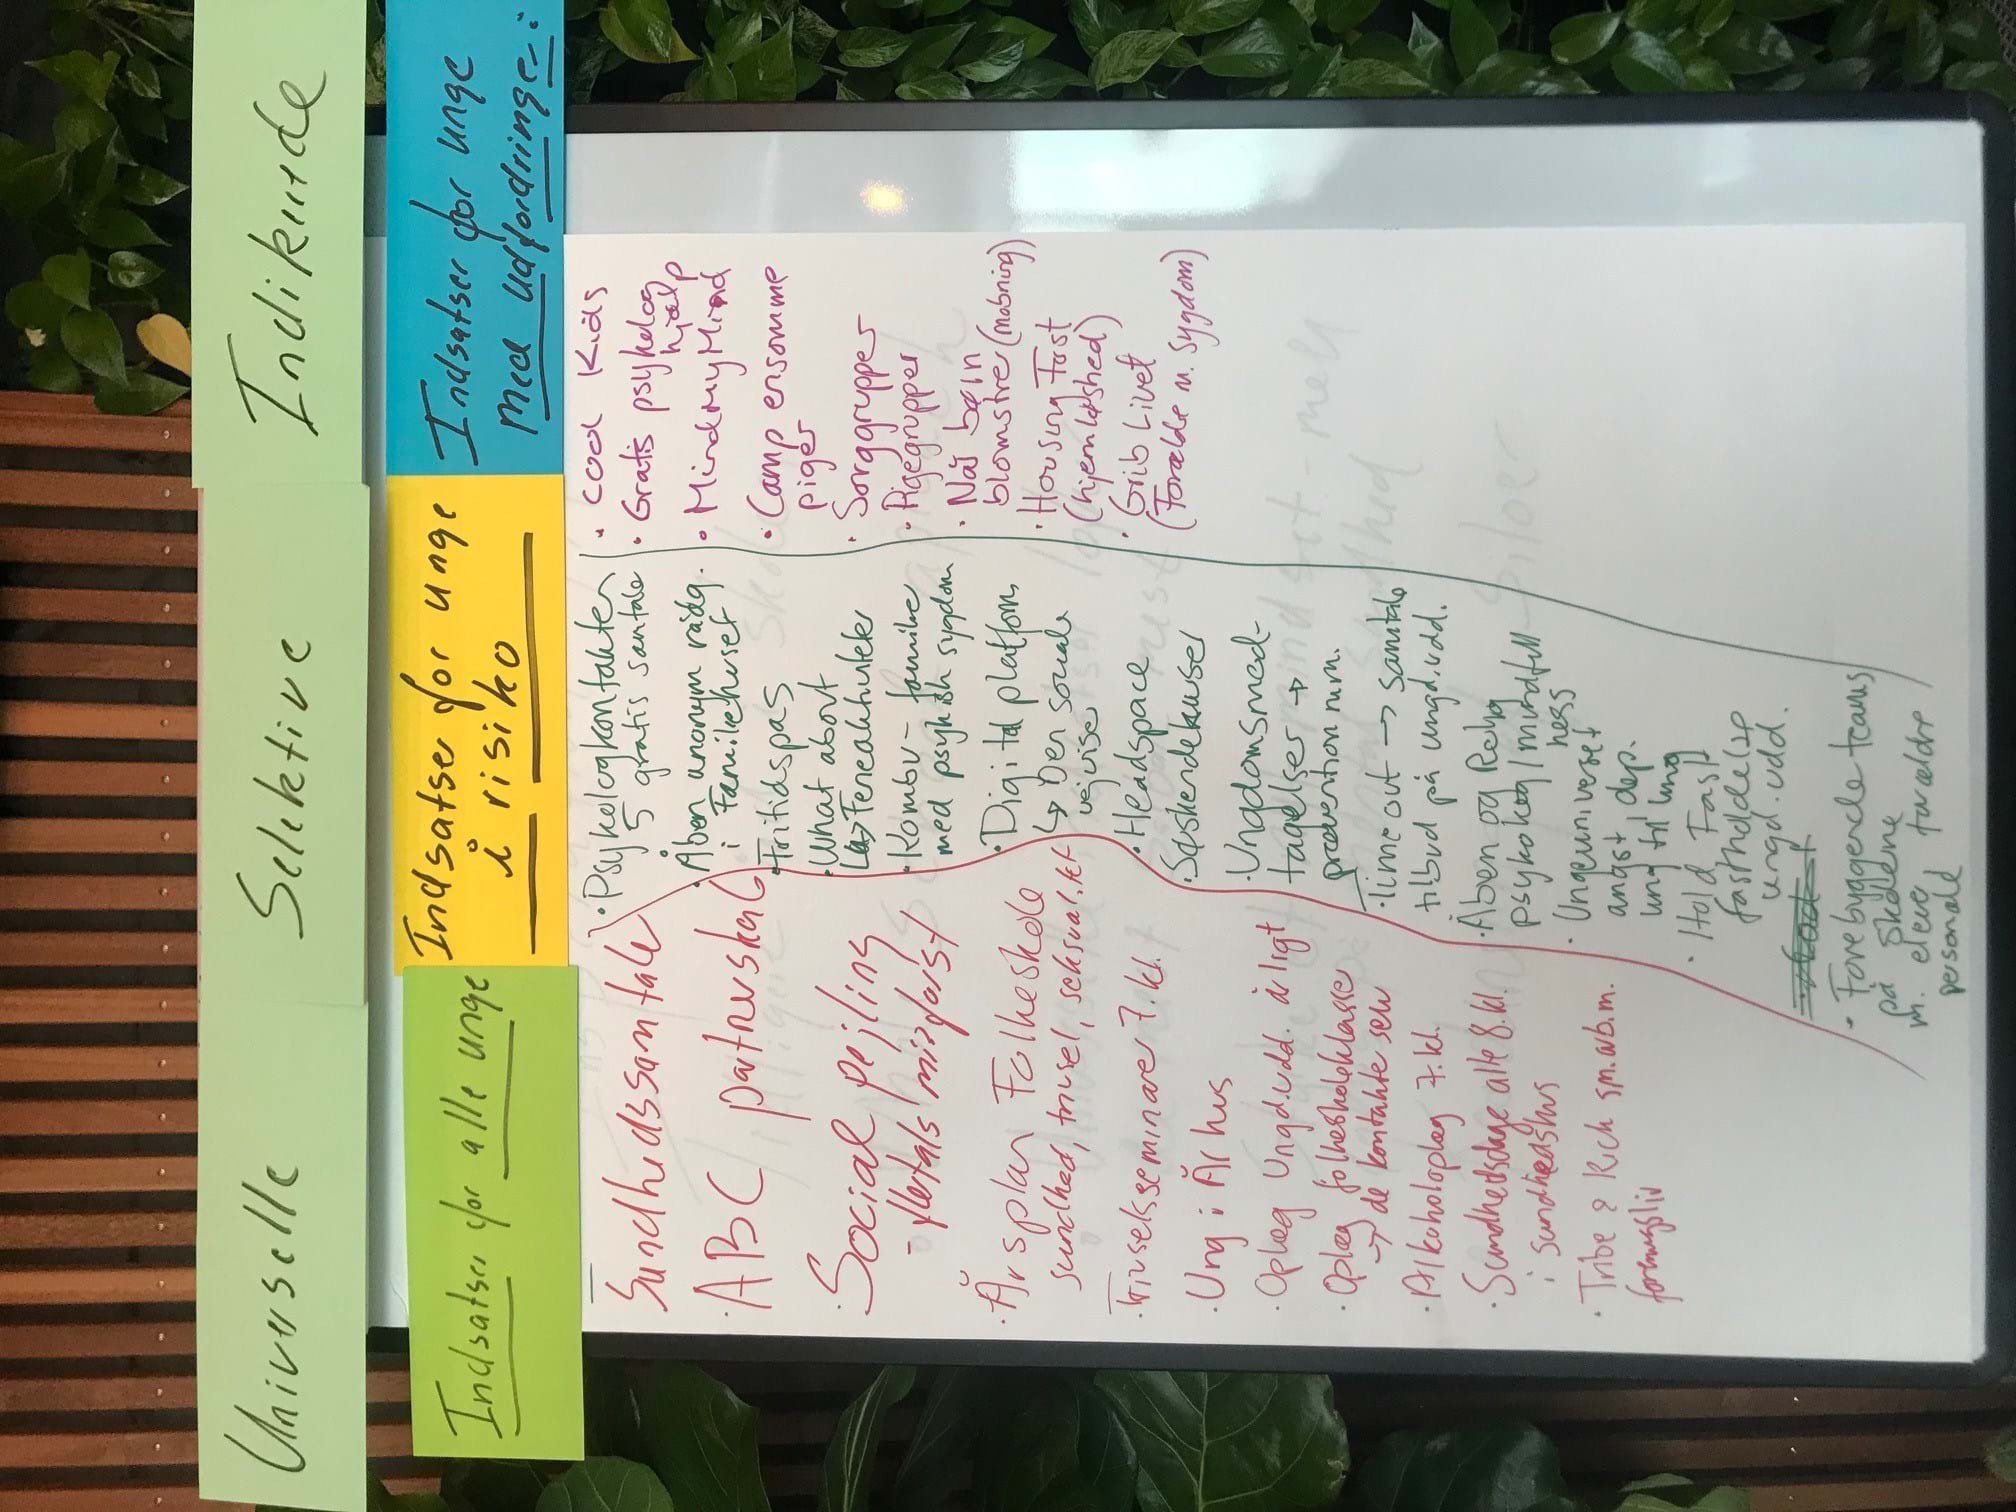 Universelle
Selektive
Indikerede
Indsatser for alle unge
Indsatser for unge
i risiko
Indsatser for unge
med udfordringer:
Sundhedssamtale
· ABC partnerskab
· Social pejling
- flertals misforst
· Årsplan Folkeskole
sundhed, trivsel, seksual.
· Trivselsseminarer 7. kl.
· Ung i Århus
· Oplæg Ungd.udd. årligt
· Oplæg folkeskoleklasse
→ de kontakte selv
· Alkoholoplæg 7. kl.
· Sundhedsdage alle 8. kl.
i sundhedshus
· Tribe & Rich sm.arb.m.
foreningsliv
· Psykologkontakter
5 gratis samtale
· Åben anonym rådg.
i Familiehuset
· Fritidspas
· What about
↳
· Kombu - familier
med psykisk sygdom
· Digital platform
↳ Den sociale
vejviser
· Headspace
· Søskendekurser
· Ungdomsmod-
tagelser →
prævention mm.
· Time out → samtale
tilbud på ungd.udd.
· Åben og Rolig
psykolog / mindfull
ness
· Ungeuniverset
angst dep.
ung til ung
· Hold Fast
fastholdelse
ungd.udd.
· Forebyggende teams
på skolerne
m. elever forældre
personale
· Cool Kids
· Gratis psykolog
hjælp
· MindmyMind
· Camp ensomme
piger
· Sorggrupper
· Pigegrupper
· Når børn
blomstrer (mobning)
· Housing First
(hjemløshed)
· Grib Livet
(Forældre m. sygdom)